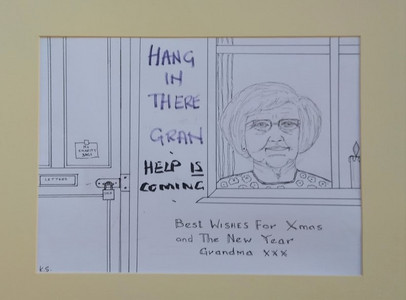 HANG
IN
THERE
GRAN
HELP IS
COMING
LETTERS
Best Wishes For Xmas
and The New Year
Grandma xxx